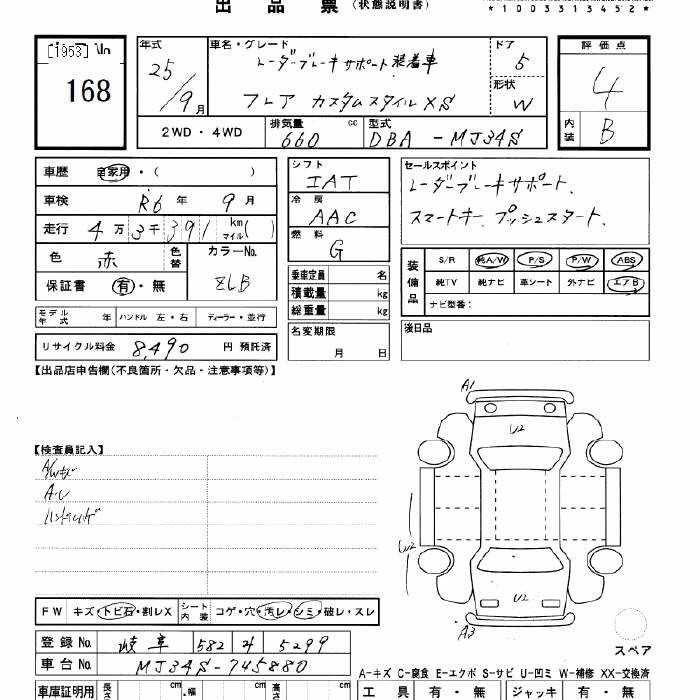 出 品 票 (状態説明書)
*1003313452*
[1953]
168
年式 25/9月
車名・グレード レーダーブレーキサポート装着車
フレア カスタムスタイルXS
ドア 5
形状 W
評価点 4
内装 B
2WD・4WD
排気量 660 cc
型式 DBA-MJ34S
車歴 自家用・( )
車検 R6年 9月
走行 4万3千391 km マイル( )
色 赤 色替
カラーNo. ZLB
保証書 有・無
シフト IAT
冷房 AAC
燃料 G
乗車定員 名
積載量 kg
総重量 kg
名変期限 月 日
モデル年式 年 ハンドル 左・右 ディーラー・並行
リサイクル料金 8,490 円 預託済
セールスポイント
レーダーブレーキサポート、
スマートキー、プッシュスタート、
装備品 S/R 純A/W P/S P/W ABS
純TV 純ナビ 革シート 外ナビ エアB
ナビ型番:
後日品
【出品店申告欄(不良箇所・欠品・注意事項等)】
【検査員記入】
A/Wキズ
A・U
ハンドルハゲ
A1
U2
W2
U2
A3
スペア
FW キズ・トビ石・割レX
シート内装 コゲ・穴・汚レ・シミ・破レ・スレ
登録No. 岐阜 582 す 5299
車台No. MJ34S-745880
A-キズ C-腐食 E-エクボ S-サビ U-凹ミ W-補修 XX-交換済
車庫証明用 長さ cm ・幅 cm 高さ cm
工具 有・無 ジャッキ 有・無